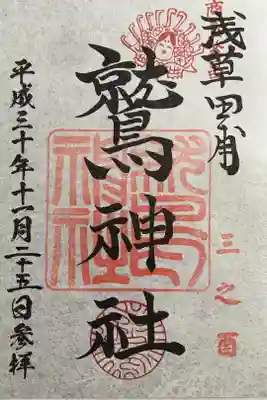 浅草田甫
三之酉
鷲神社
平成三十年十一月二十五日参拝